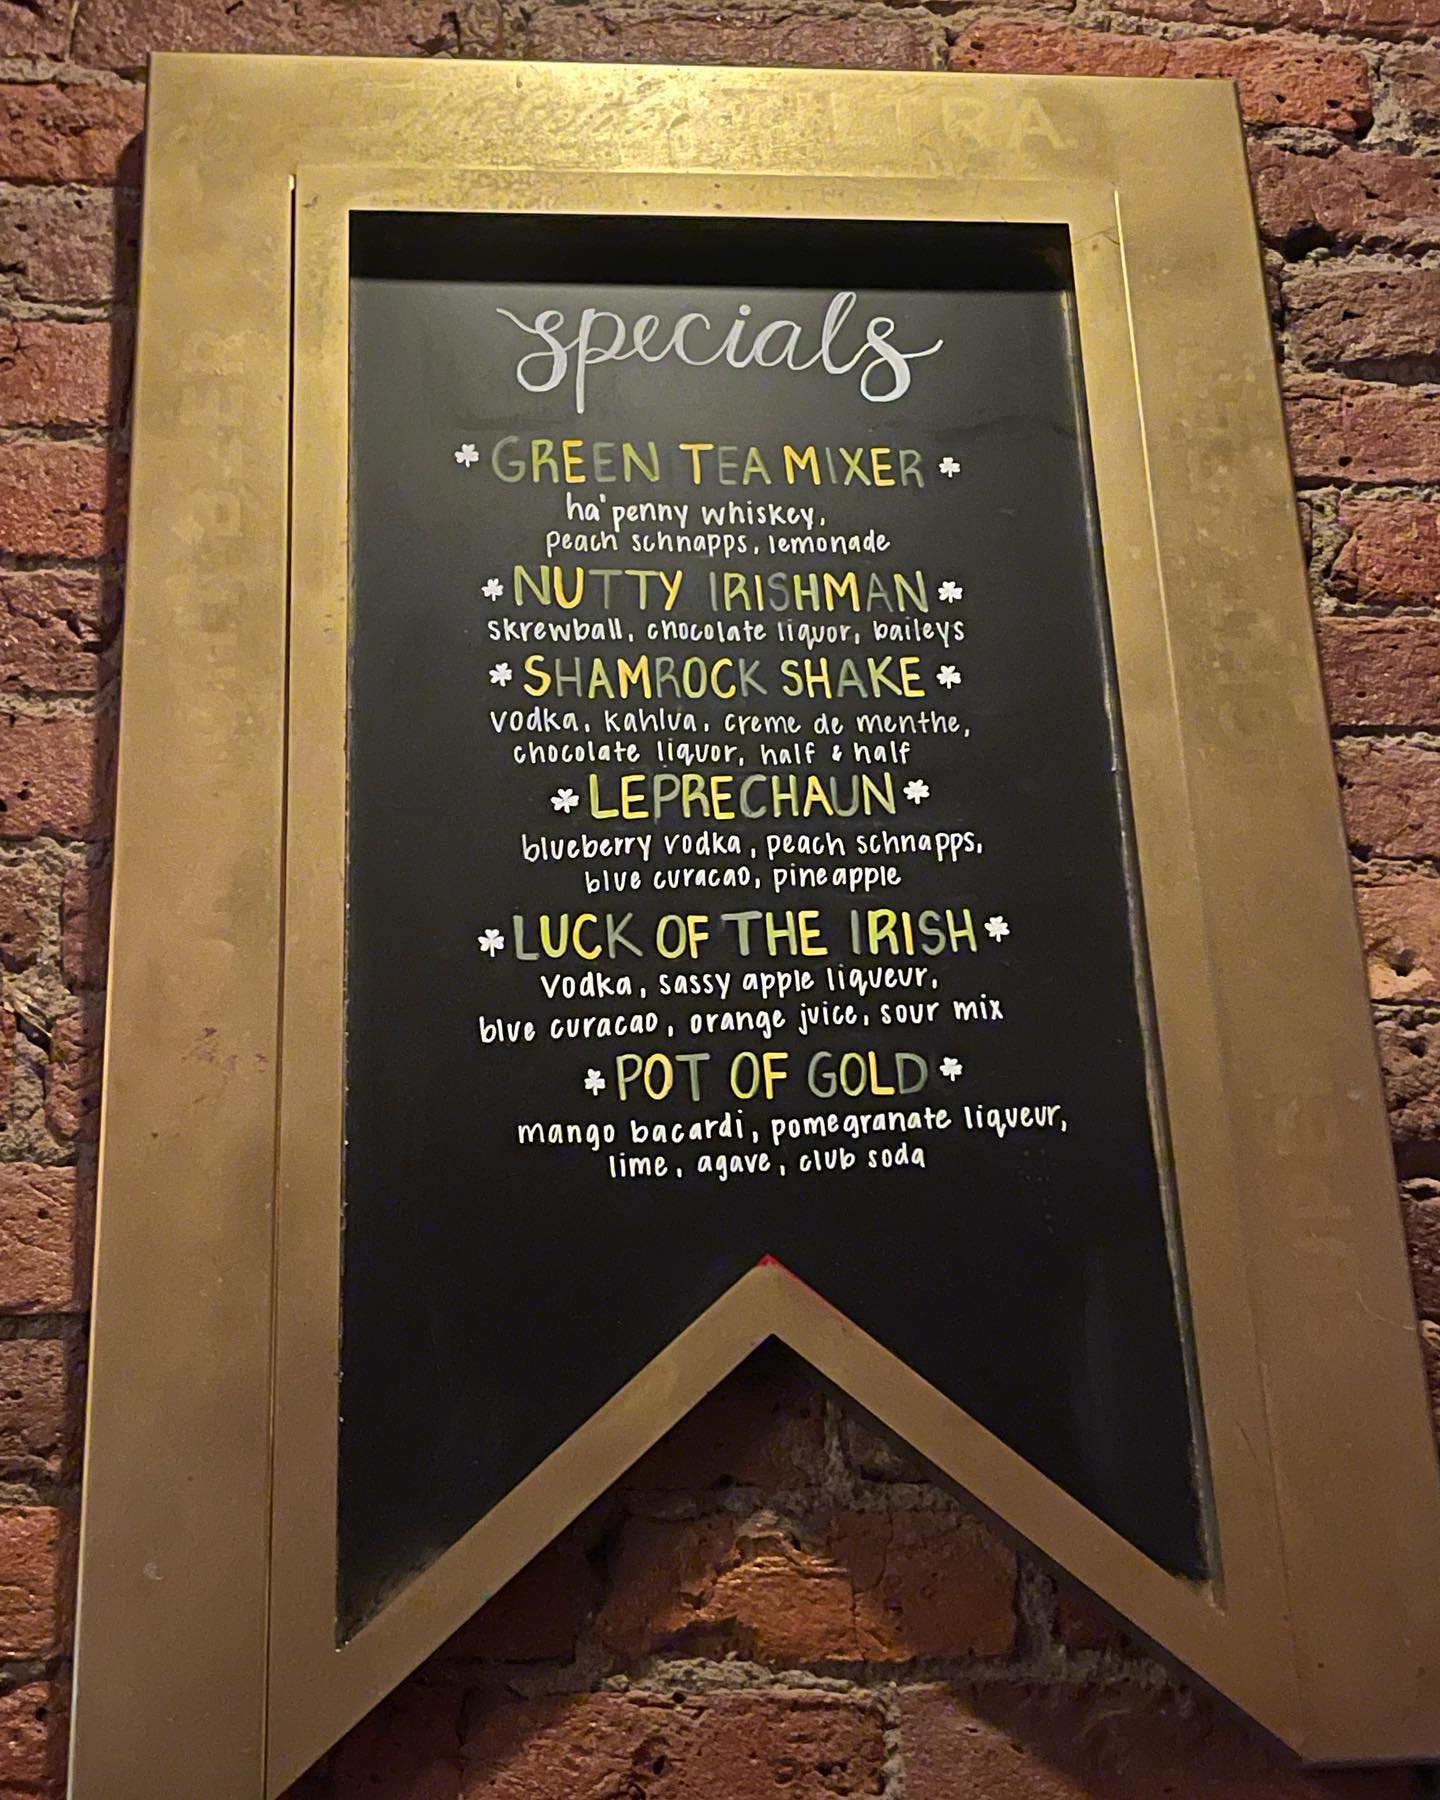 ULTRA
specials
GREEN TEA MIXER
ha'penny whiskey,
peach schnapps, lemonade
NUTTY IRISHMAN
skrewball, chocolate liquor, baileys
SHAMROCK SHAKE
vodka, kahlua, creme de menthe,
chocolate liquor, half & half
LEPRECHAUN
blueberry vodka, peach schnapps,
blue curacao, pineapple
LUCK OF THE IRISH
vodka, sassy apple liqueur,
blue curacao, orange juice, sour mix
POT OF GOLD
mango bacardi, pomegranate liqueur,
lime, agave, club soda